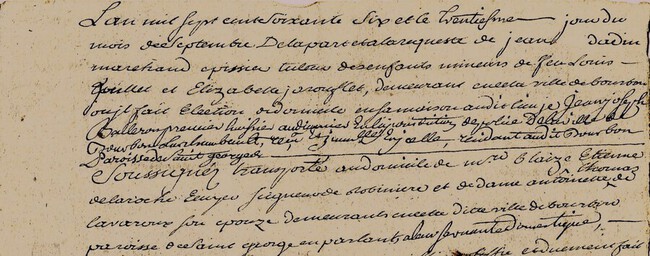 Lan mil sept cent soixante six et le trentiesme jour du
mois de septembre De la part et a la requeste de jean dadin
marchand epissier tuteur des enfants mineurs de feu Louis
et Elizabette demeurant en cette ville de bourbon
fait Election de domicille en sa maison audit lieu je Jean joseph
Balleron premier huissier audiancier de police De la ville de
Bourbon Larchambault, y reçu et jmm.lle en jcelle, residant audit Bourbon
Paroisse de saint george
Soussignez transporté au domicile de m.re Blaize Etienne
de laroche Ecuyer seigneur de robiniere et de dame antoinette de thomas
lavaroux son epouze demeurants en cette ditte ville de bourbon
paroisse de Saint george en parlant a leur servante Domestique,
fait